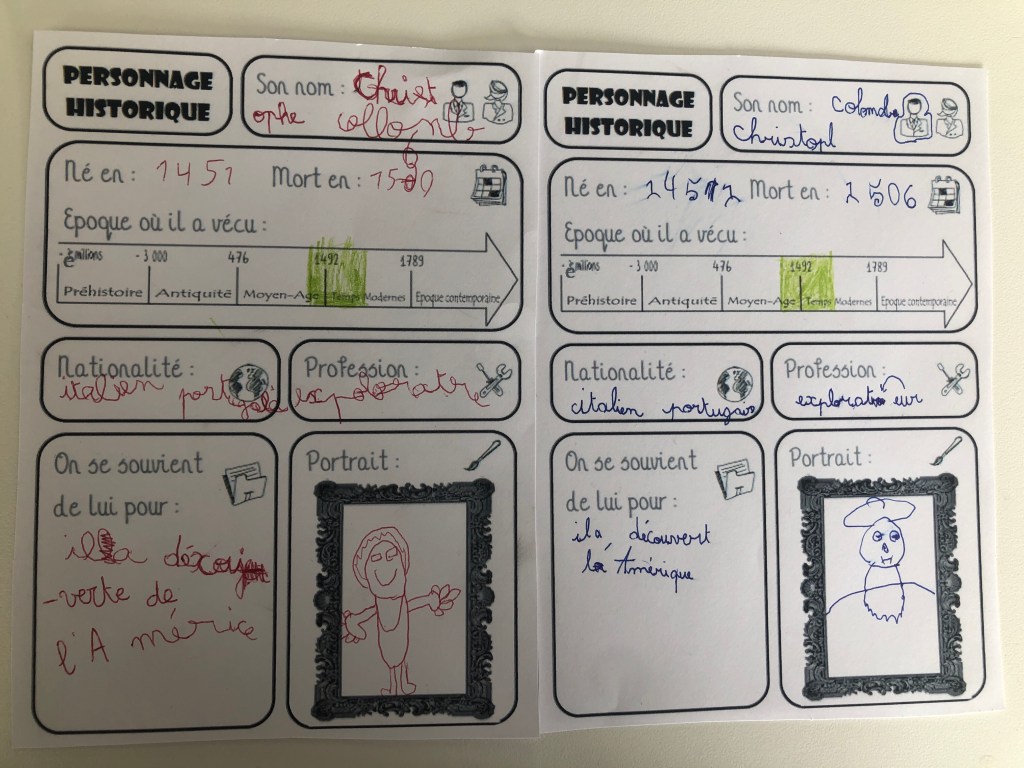 PERSONNAGE
HISTORIQUE
Son nom : Christ
ophe collomb
Né en : 1451 Mort en : 1500
6
Epoque où il a vécu :
millions - 3 000 476 1492 1789
Préhistoire Antiquité Moyen-Age Temps Modernes Epoque contemporaine
Nationalité :
italien portugais
Profession :
On se souvient
de lui pour :
il a décou
-verte de
l'A mérice
Portrait :
PERSONNAGE
HISTORIQUE
Son nom : colomb
christopl
Né en : Mort en : 1506
Epoque où il a vécu :
millions - 3 000 476 1492 1789
Préhistoire Antiquité Moyen-Age Temps Modernes Epoque contemporaine
Nationalité :
italien portugais
Profession :
explorateur
On se souvient
de lui pour :
il a découvert
la Amérique
Portrait :